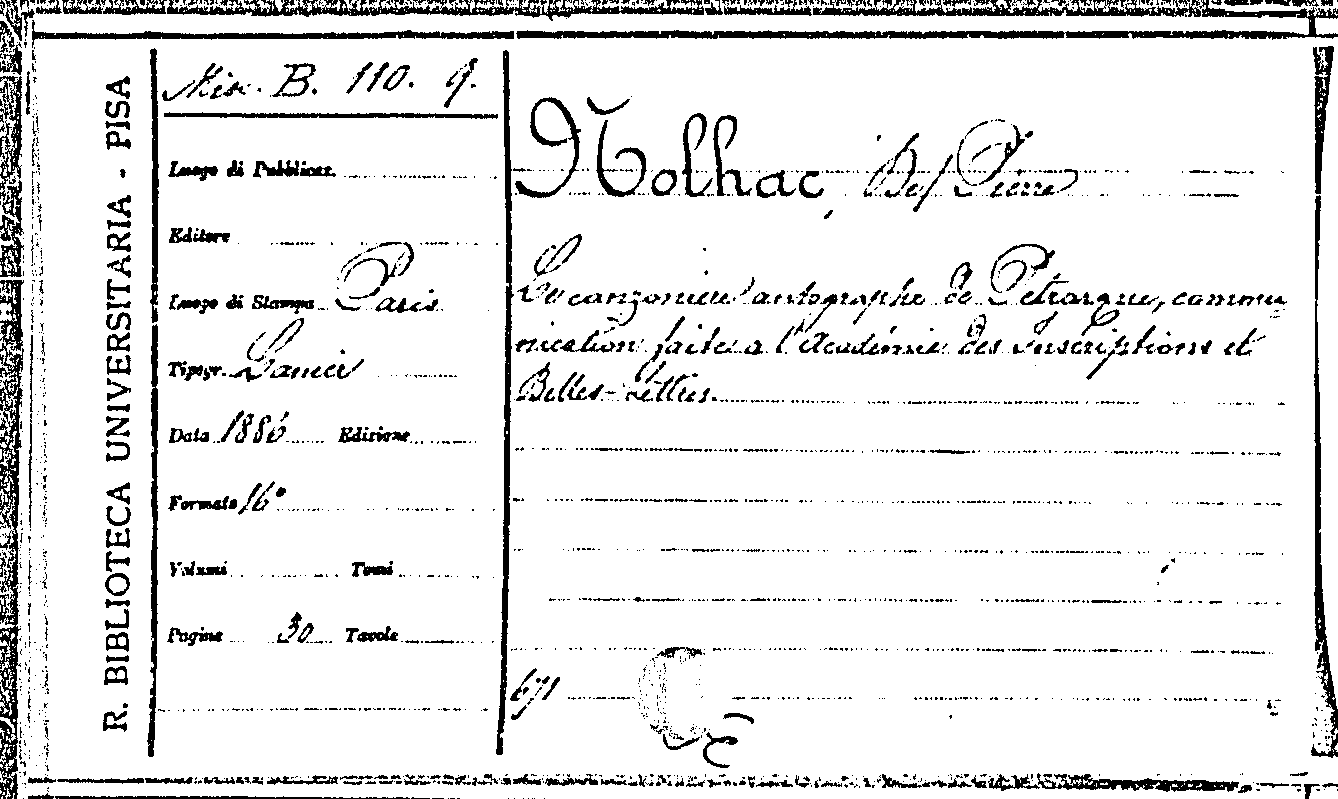 R. BIBLIOTECA UNIVERSITARIA - PISA
Misc. B. 110. 9.
Luogo di Pubblicaz.
Editore
Luogo di Stampa Paris
Tipogr. Lanier
Data 1886 Edizione
Formato 16°
Volumi Tomi
Pagine 30 Tavole
Nolhac, (De) Pierre
Le canzoniere autographe de Pétrarque, commu
nication faite a l'Académie des Inscriptions et
Belles-Lettres.
671